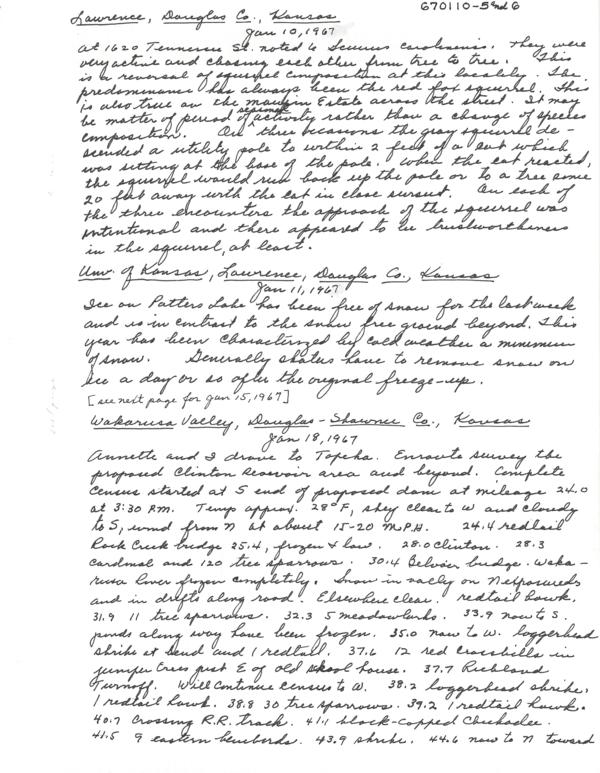 670110-5 and 6
Lawrence, Douglas Co., Kansas
Jan 10, 1967
At 1620 Tennessee St. noted 6 Sciurus carolinensis. They were
very active and chasing each other from tree to tree. This
is a reversal of squirrel composition at this locality. The
predominance has always been the red fox squirrel. This
is also true on the Estate across the street. It may
be matter of period of seasonal activity rather than a change of species
composition. On three occasions the gray squirrel de-
scended a utility pole to within 2 feet of a cat which
was sitting at the base of the pole. When the cat reacted,
the squirrel would run back up the pole or to a tree some
20 feet away with the cat in close pursuit. On each of
the three encounters the approach of the squirrel was
intentional and there appeared to be trustworthiness
in the squirrel, at least.
Univ. of Kansas, Lawrence, Douglas Co., Kansas
Jan 11, 1967
Ice on Potters Lake has been free of snow for the last week
and is in contrast to the snow free ground beyond. This
year has been characterized by cold weather a minimum
of snow. Generally skaters have to remove snow on
ice a day or so after the original freeze-up.
[see next page for Jan 15, 1967]
Wakarusa Valley, Douglas-Shawnee Co., Kansas
Jan 18, 1967
Annette and I drove to Topeka. Enroute survey the
proposed Clinton Reservoir area and beyond. Complete
census started at S end of proposed dam at mileage 24.0
at 3:30 P.M. Temp approx. 28°F, sky clear to W and cloudy
to S, wind from N at about 15-20 M.P.H. 24.4 redtail
Rock Creek bridge 25.4, frozen & low. 28.0 Clinton. 28.3
cardinal and 120 tree sparrows. 30.4 Belvoir bridge. Waka-
rusa River frozen completely. Snow in valley on N exposures
and in drifts along road. Elsewhere clear. redtail hawk.
31.9 11 tree sparrows. 32.3 5 meadowlarks. 33.9 now to S.
ponds along way have been frozen. 35.0 now to W. loggerhead
shrike at bend and 1 redtail. 37.6 12 red crossbills in
juniper trees just E of old school house. 37.7 Richland
Turnoff. Will continue census to W. 38.2 loggerhead shrike.
1 redtail hawk. 38.8 30 tree sparrows. 39.2 1 redtail hawk.
40.7 crossing R.R. track. 41.1 black-capped chickadee.
41.5 9 eastern bluebirds. 43.9 shrike. 44.6 now to N toward